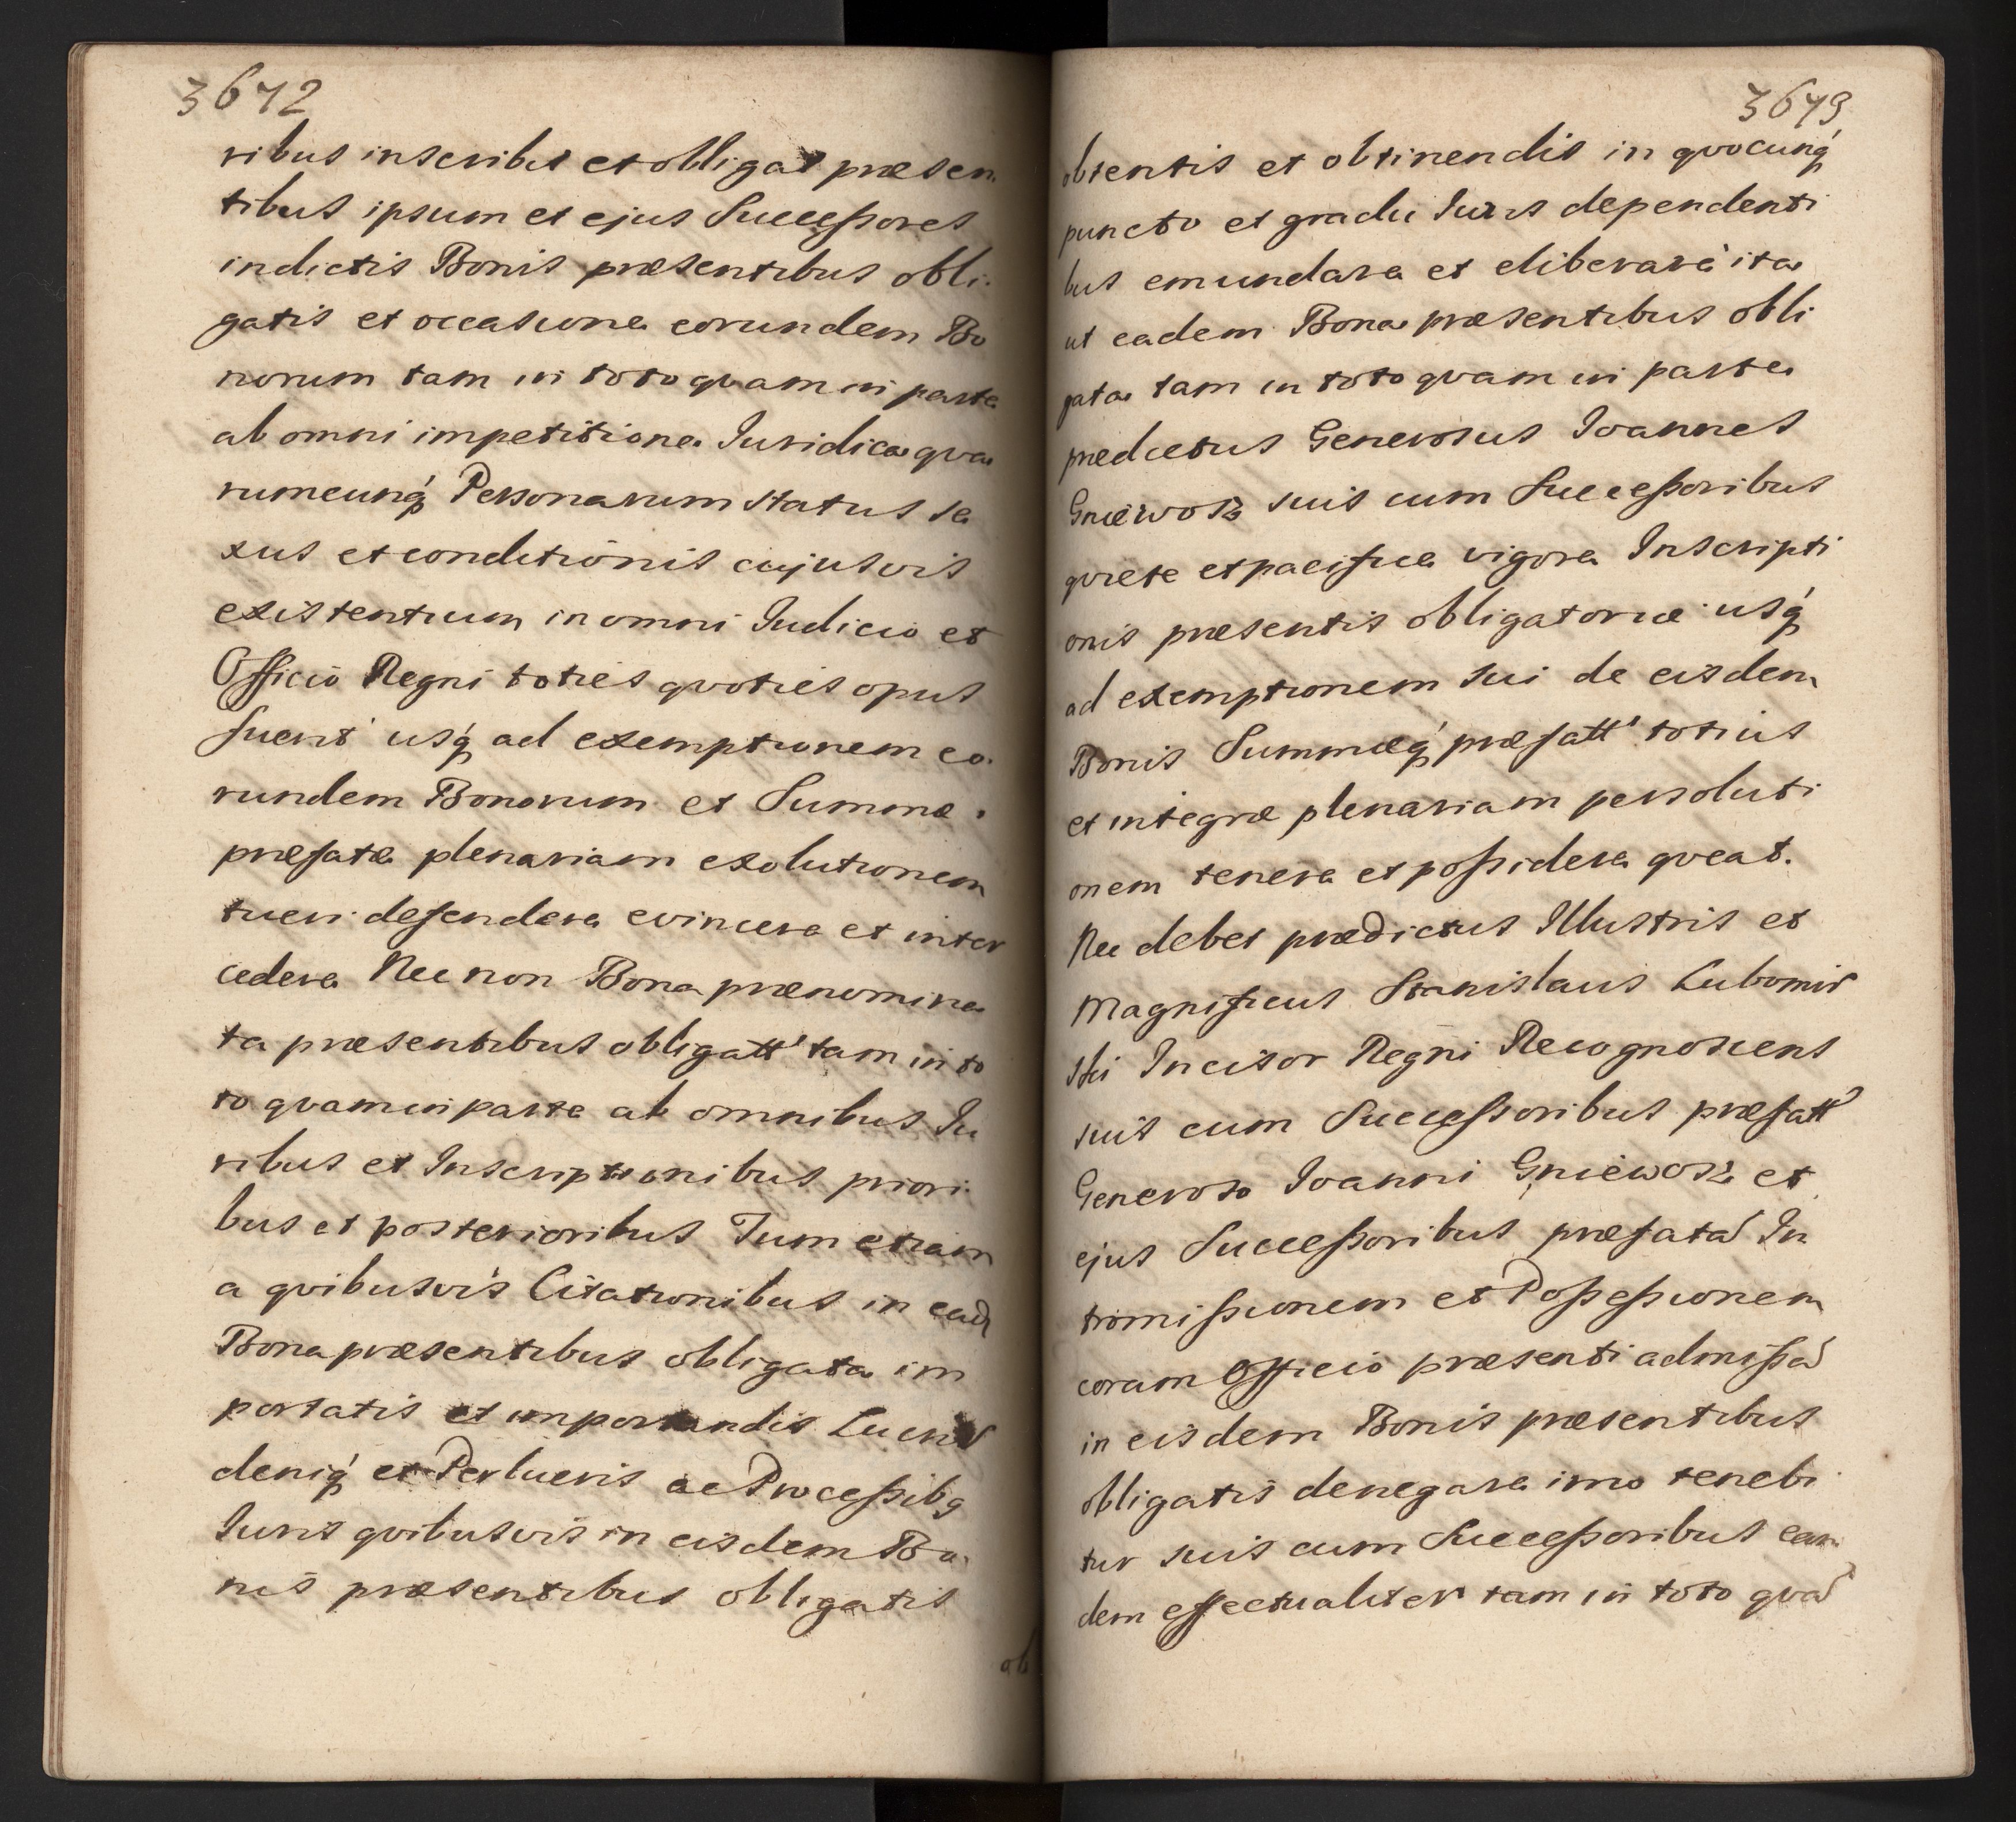 3672
ribus inscribit et obligat præsen
tibus ipsum et ejus Successores
in dictis Bonis præsentibus obli.
gatis et occasione eorundem Bo
norum tam in toto qvam in parte
ab omni impetitione Juridica qva
rumcunq́ Personarum status se
xus et conditionis cujusvis
existentium in omni Judicio et
Officio Regni toties qvoties opus
fuerit usq́ ad exemptionem eo.
rundem Bonorum et Summæ
præfatæ plenariam exolutionem
tueri defendere evincere et inter
cedere Nec non Bona prænomina
ta præsentibus obligatt' tam in to
to qvam in parte ab omnibus Ju
ribus et Inscriptionibus priori.
bus et posterioribus Tum etiam
a qvibusvis Citationibus in ead
Bona præsentibus obligata im
portatis et importandis Lucris
deniq́ et Perlucris ac Processibq
Juris qvibusvis in eisdem Bo.
nis præsentibus obligatis
ob
3673
obtentis et obtinendis in qvocunq́
puncto et gradu Juris dependenti
bus emundare et eliberare ita
ut eadem Bona præsentibus obli
gata tam in toto qvam in parte
prædictus Generosus Joannes
Gniewosz suis cum Successoribus
qviete et pacifice vigore Inscripti
onis præsentis obligatoriæ usq́
ad exemptionem sui de eisdem
Bonis Summæq́ præfatt' totius
et integræ plenariam persoluti
onem tenere et possidere qveat.
Nec debet prædictus Illustris et
Magnificus Stanislaus Lubomir
ski Incisor Regni Recognoscens
suis cum Successoribus præfatt'
Generoso Joanni Gniewosz et
ejus Successoribus præfata In
tromissionem et Possessionem
coram Officio præsenti admissa
in eisdem Bonis præsentibus
obligatis denegare imo tenebi
tur suis cum Successoribus ean
dem effectualiter tam in toto qva